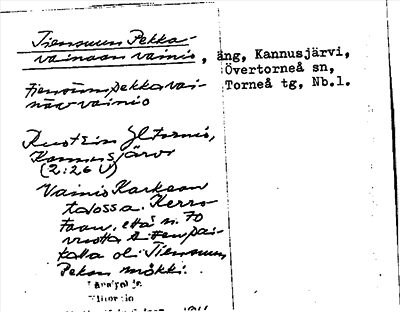 Tiensuun Pekka-
vainaan vainio, äng, Kannusjärvi,
Övertorneå sn,
Torneå tg, Nb.l.
tiensūmpekkavai-
nāvvainio
Ruotsin Ylitornio,
Kannusjärvi
(2:26 U)
Vainio Karkean
talossa. Kerro-
taan, että n. 70
vuotta
talla oli Tiensuun
Pekan mökki.